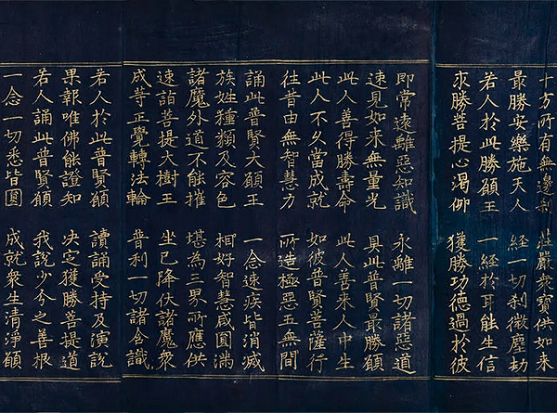 十方所有無邊剎 莊嚴衆寶供如來
最勝安樂施天人 經一切剎微塵劫
若人於此勝願王 一經於耳能生信
求勝菩提心渴仰 獲勝功德過於彼
即常遠離惡知識 永離一切諸惡道
速見如來無量光 具此普賢最勝願
此人善得勝壽命 此人善來人中生
此人不久當成就 如彼普賢菩薩行
往昔由無智慧力 所造極惡五無間
誦此普賢大願王 一念速疾皆消滅
族姓種類及容色 相好智慧咸圓滿
諸魔外道不能摧 堪為三界所應供
速詣菩提大樹王 坐已降伏諸魔衆
成等正覺轉法輪 普利一切諸含識
若人於此普賢願 讀誦受持及演說
果報唯佛能證知 決定獲勝菩提道
若人誦此普賢願 我說少分之善根
一念一切悉皆圓 成就衆生清淨願